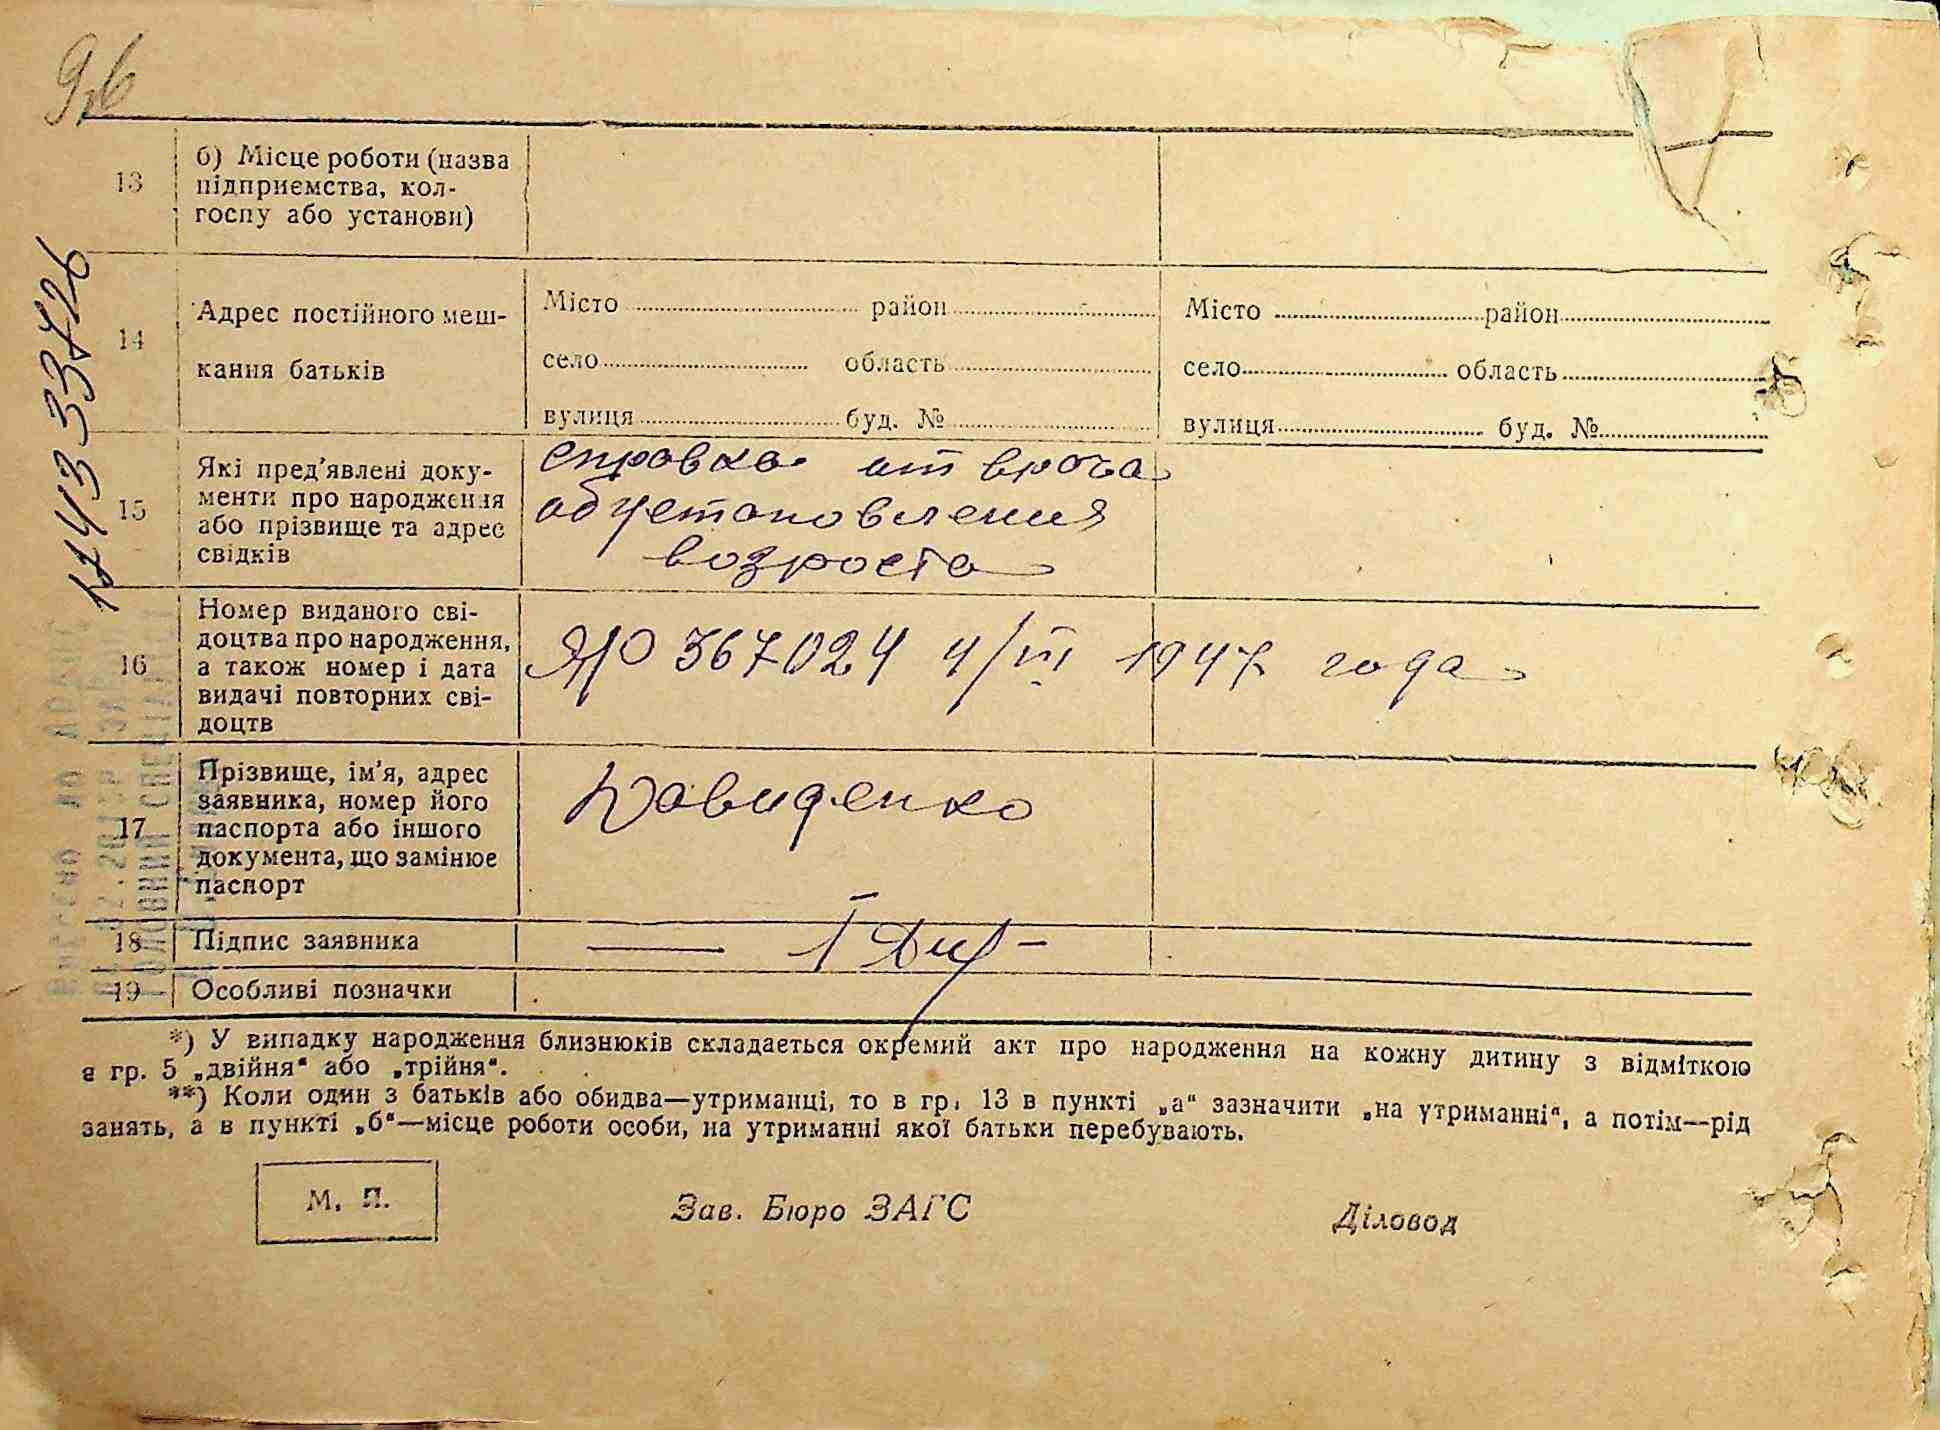 96
13
б) Місце роботи (назва
підприємства, кол-
госпу або установи)
14
Адрес постійного меш-
кання батьків
Місто район
село область
вулиця буд. №
Місто район
село область
вулиця буд. №
15
Які пред'явлені доку-
менти про народження
або прізвище та адрес
свідків
справка от врача
об установления
возроста
16
Номер виданого сві-
доцтва про народження,
а також номер і дата
видачі повторних сві-
доцтв
ЯР 367024 4/III 1947 года
17
Прізвище, ім'я, адрес
заявника, номер його
паспорта або іншого
документа, що замінює
паспорт
Давиденко
18
Підпис заявника
19
Особливі позначки
*) У випадку народження близнюків складається окремий акт про народження на кожну дитину з відміткою
в гр. 5 „двійня" або „трійня".
**) Коли один з батьків або обидва—утриманці, то в гр. 13 в пункті „а" зазначити „на утриманні", а потім—рід
занять, а в пункті „б"—місце роботи особи, на утриманні якої батьки перебувають.
М. П.
Зав. Бюро ЗАГС
Діловод